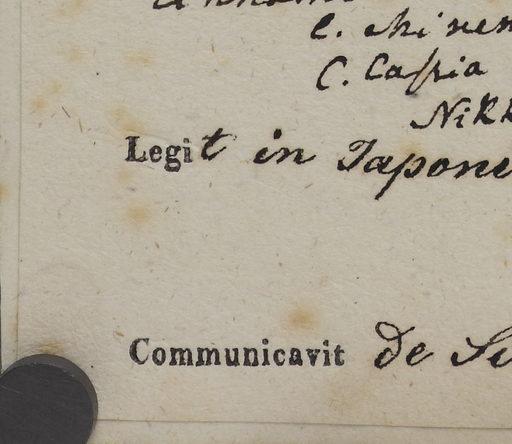 C. chinen
C. Caſsia
Nikk
Legit in Japone
Communicavit de Si